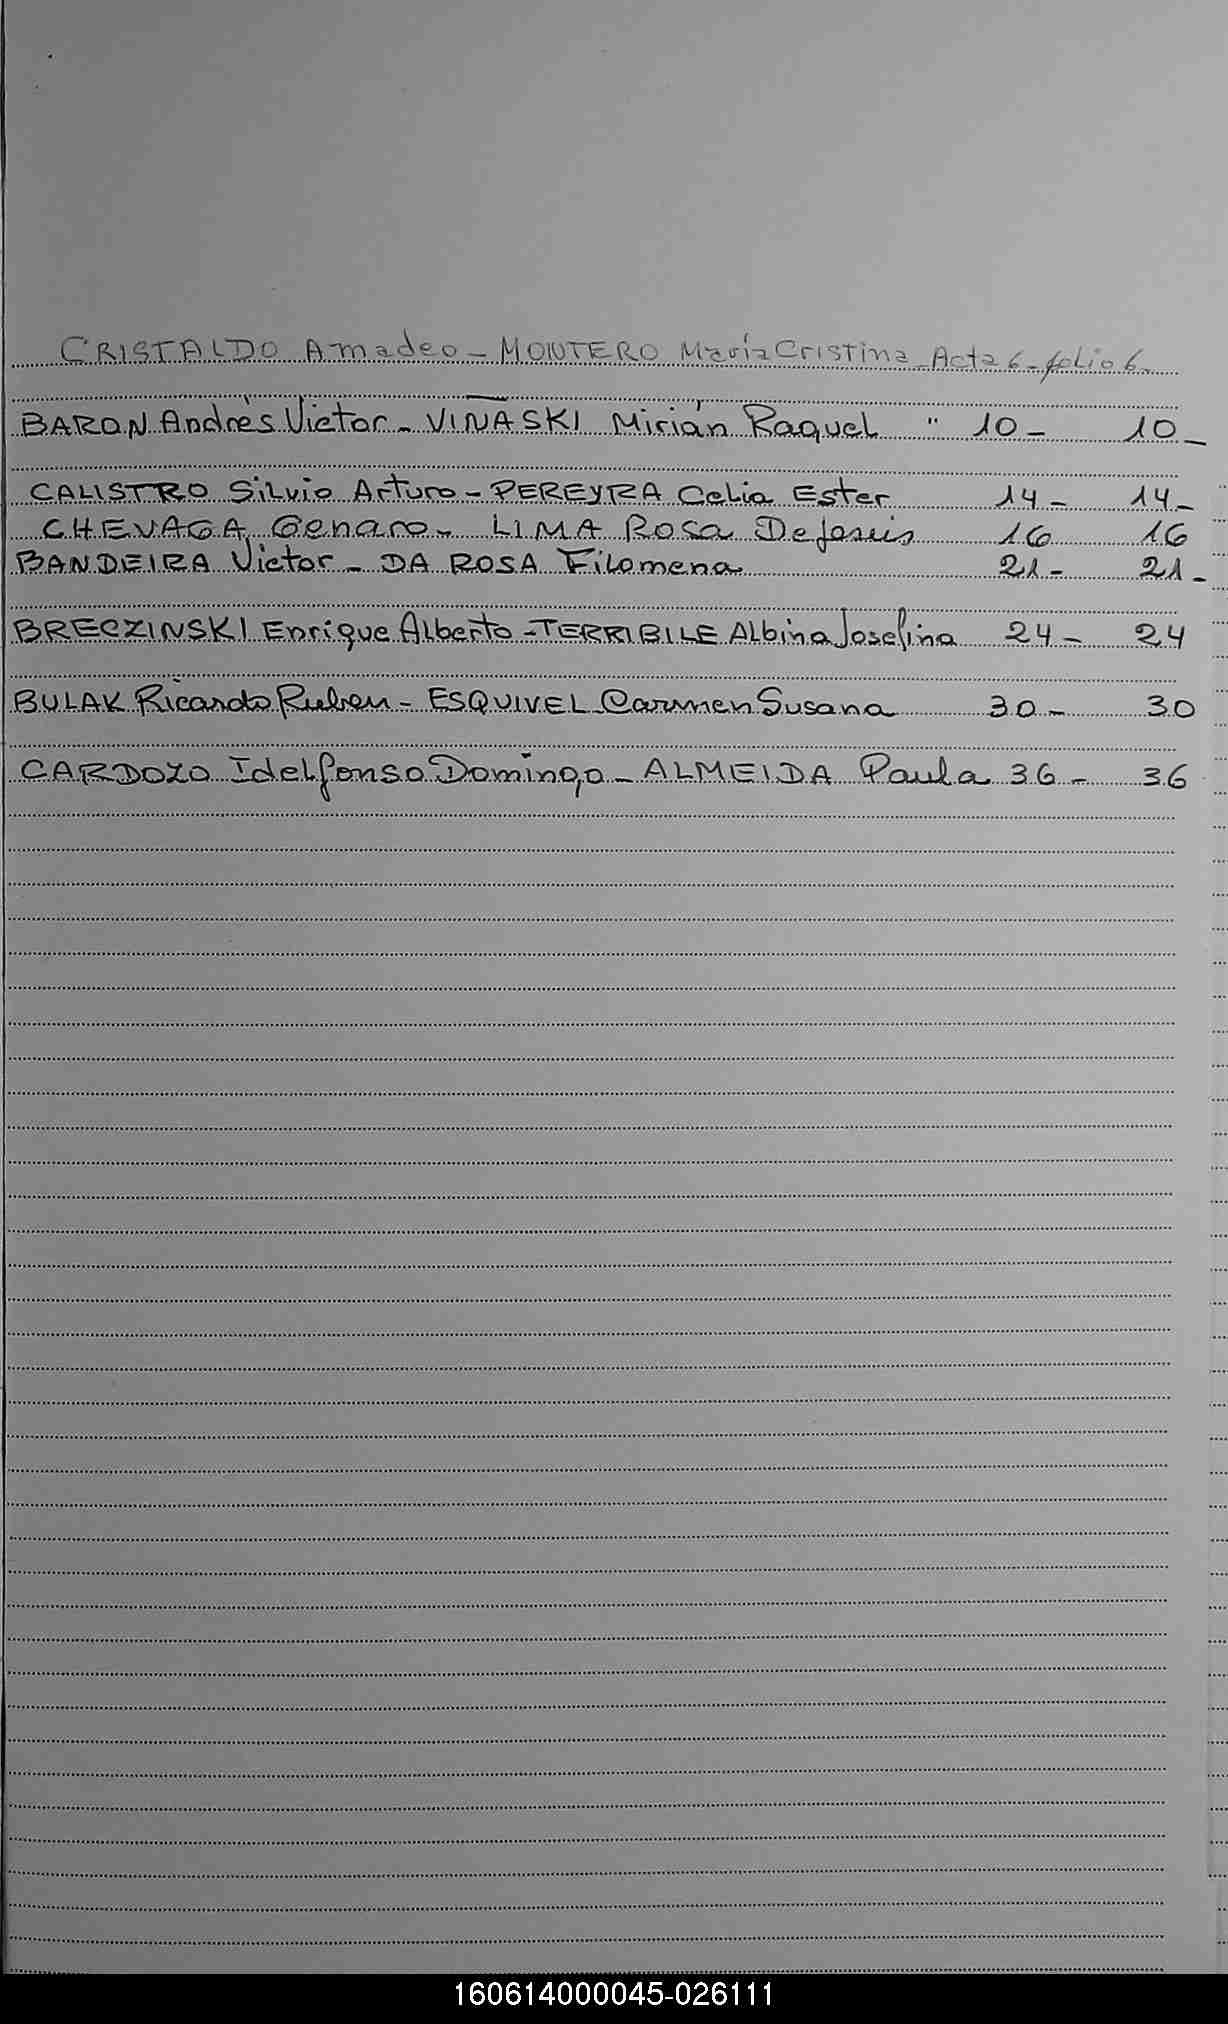 CRISTALDO Amadeo - MONTERO María Cristina - Acta 6 - folio 6 -
BARON Andrés Victor - VIÑASKI Mirián Raquel " 10 - 10 -
CALISTRO Silvio Arturo - PEREYRA Celia Ester 14 - 14 -
CHEVAGA Genaro - LIMA Rosa De Jesús 16 16
BANDEIRA Victor - DA ROSA Filomena 21 - 21 -
BRECZINSKI Enrique Alberto - TERRIBILE Albina Josefina 24 - 24
BULAK Ricardo Ruben - ESQUIVEL Carmen Susana 30 - 30
CARDOZO Idelfonso Domingo - ALMEIDA Paula 36 - 36
160614000045-026111